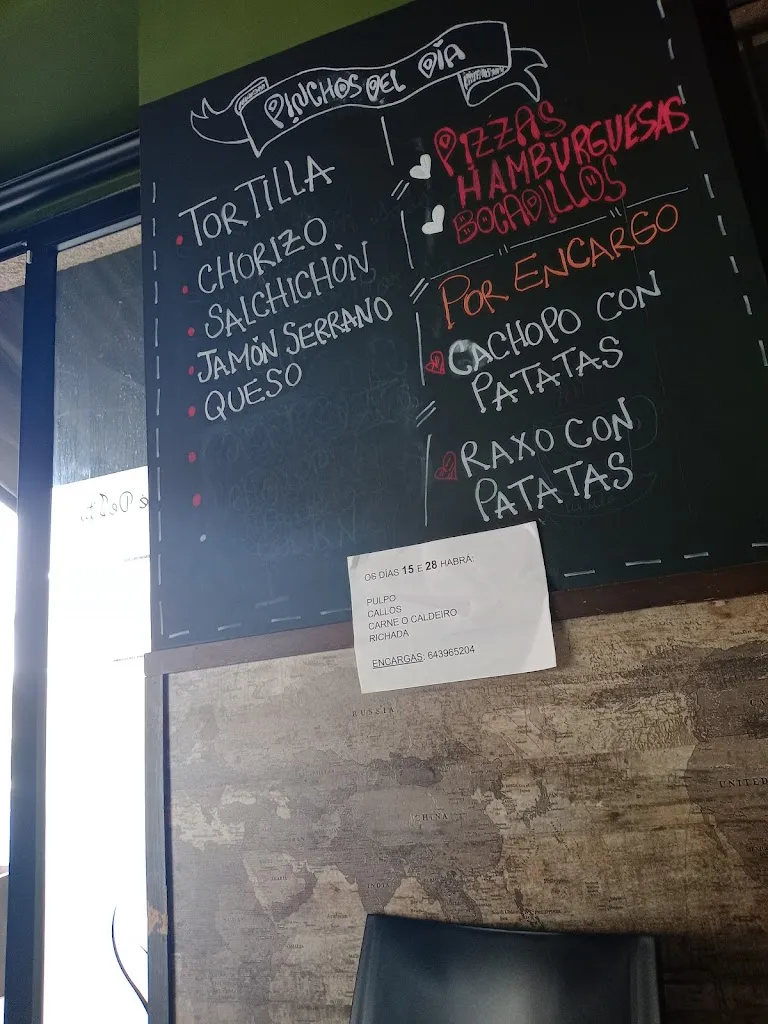 PINCHOS DEL DÍA
TORTILLA
CHORIZO
SALCHICHÓN
JAMÓN SERRANO
QUESO
PIZZAS
HAMBURGUESAS
BOCADILLOS
POR ENCARGO
CACHOPO CON
PATATAS
RAXO CON
PATATAS
OS DÍAS 15 E 28 HABRÁ:
PULPO
CALLOS
CARNE O CALDEIRO
RICHADA
ENCARGAS: 643965204
RUSSIA
CHINA
INDIA
UNITED